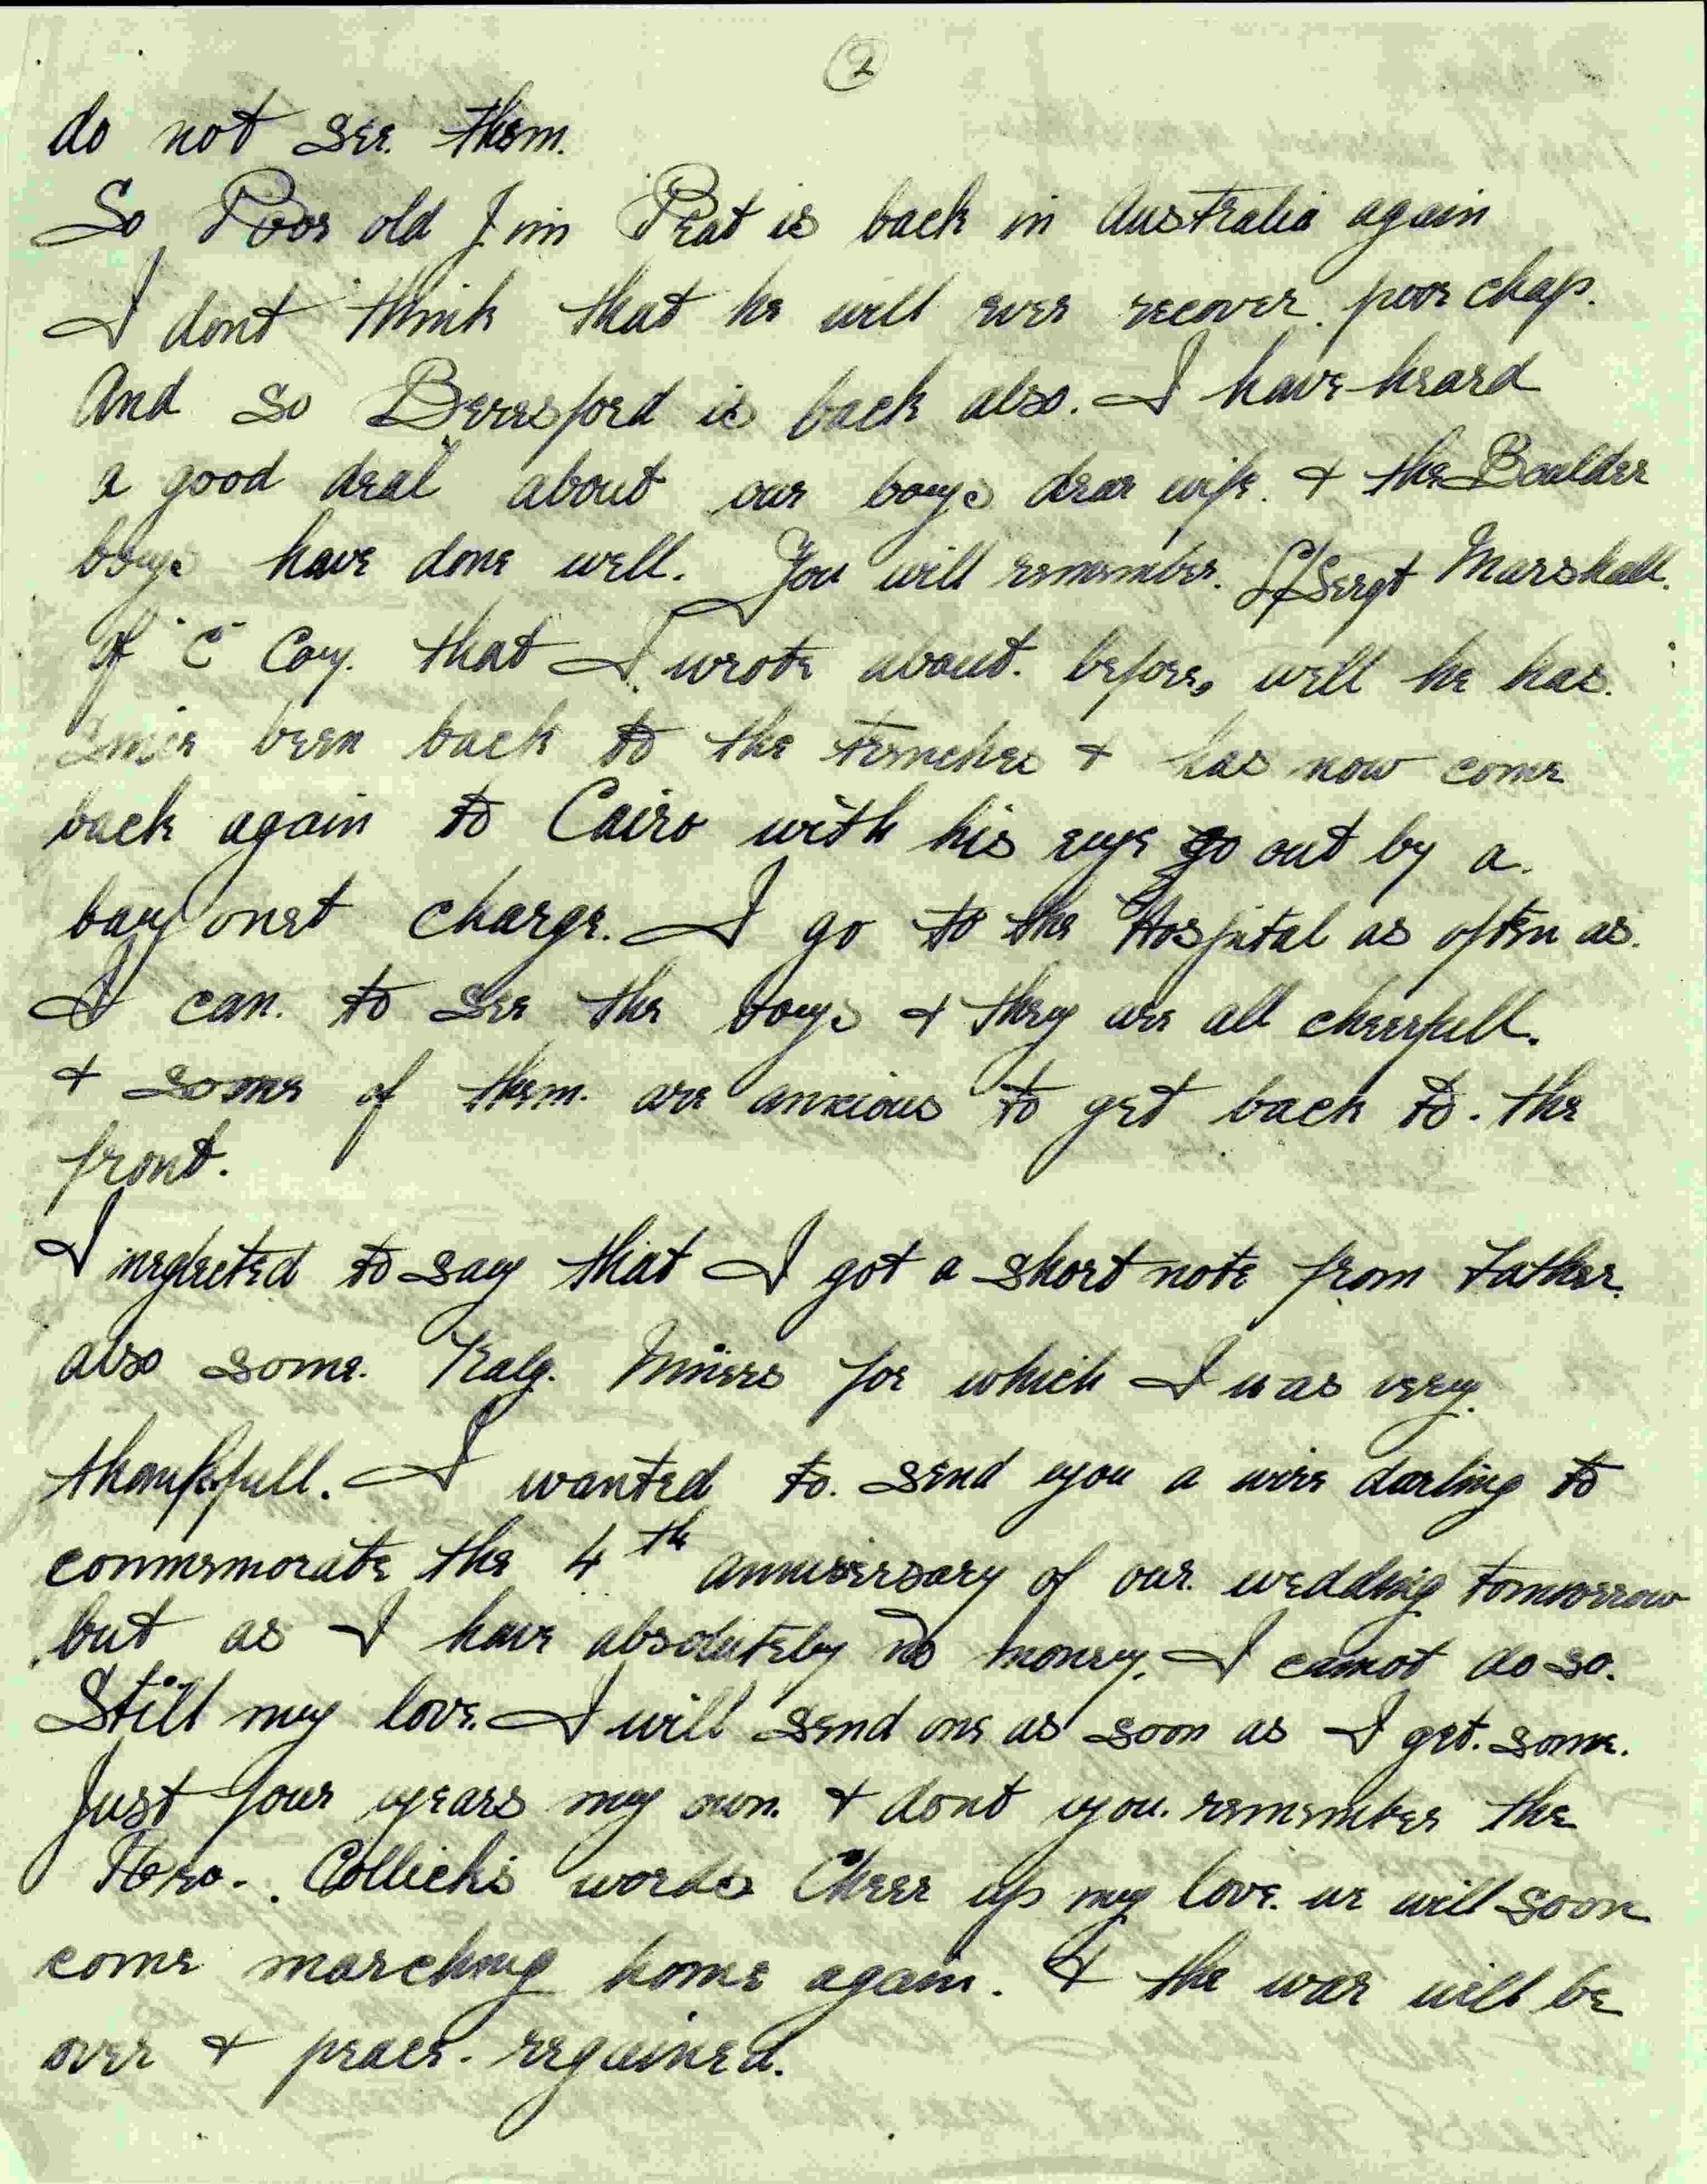 2
do not see them.
So Poor old Jim Peat is back in Australia again
I dont think that he will ever recover poor chap.
And so Beresford is back also. I have heard
a good deal about our boys dear wife. & the Boulder
boys have done well. You will remember. S/Sergt Marshall.
of "C" Coy. that I wrote about. before, well he has.
since been back to the trenches & has now come
back again to Cairo with his eye go out by a.
bayonet charge. I go to the Hospital as often as.
I can. to see the boys & they are all cheerfull.
& some of them. are anxious to get back to. the
front.
I neglected to say that I got a short note from Father.
also some. Kalg. Miners for which I was very.
thankfull. I wanted to. send you a wire darling to
commemorate the 4th anniversary of our. wedding tomorrow
but as I have absolutely no money. I cannot do so.
Still my love. I will send one as soon as I get. some.
Just four years my own. & dont you. remember the
Collick's words Cheer up my love. we will soon
come marching home again. & the war will be
over & peace. regained.